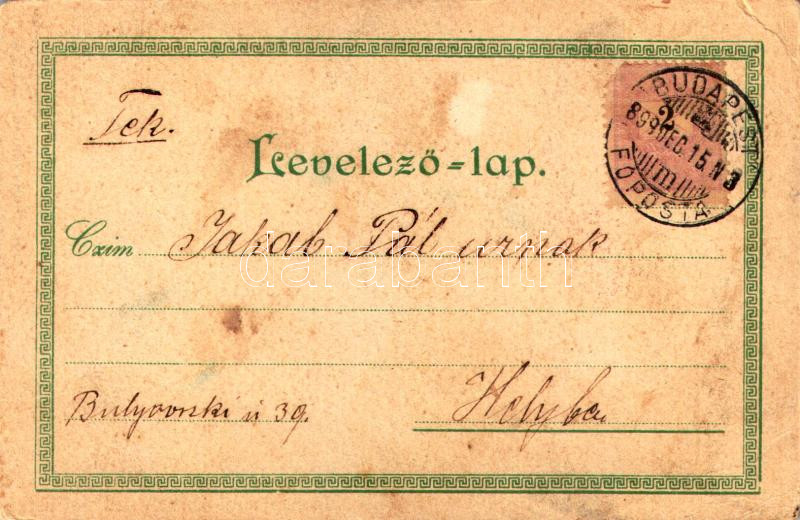 Tek.
BUDAPEST
2
899 DEC. 15. N 3
m
FŐPOSTA
Levelező-lap.
Czim Jakab Pál urnak
darabanth
Helyben
Bulyovszki ú 39.